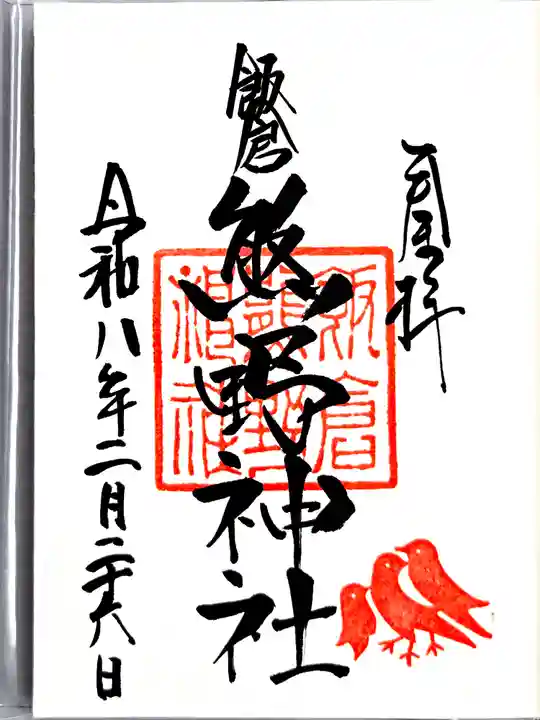 奉拝
飯倉
熊野神社
令和八年二月二十六日
飯倉
熊野
神社